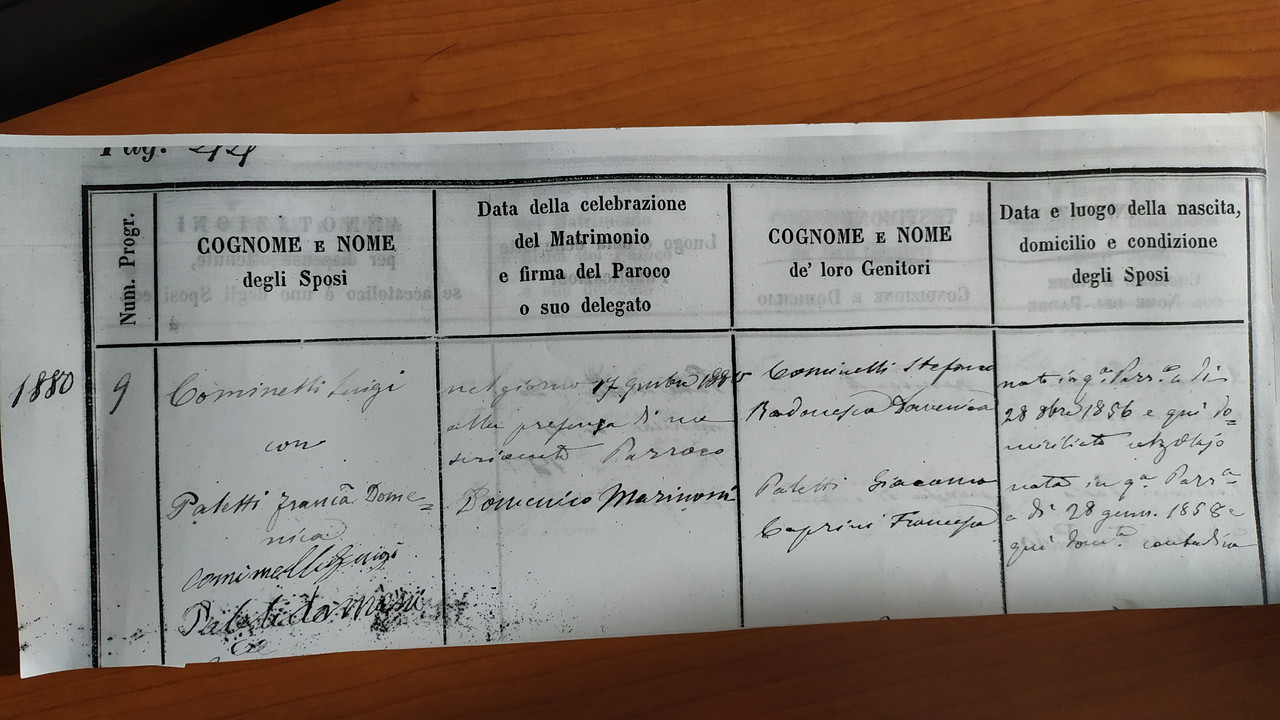 Pag. 44
Num. Progr.
COGNOME E NOME
degli Sposi
Data della celebrazione
del Matrimonio
e firma del Paroco
o suo delegato
COGNOME E NOME
de' loro Genitori
Data e luogo della nascita,
domicilio e condizione
degli Sposi
1880
9
Cominetti Luigi
con
Paletti Franca Dome=
nica
Cominelli Luigi
Paletti
nel giorno 17 1880
alla presenza di me
Parroco
Domenico Marinoni
Cominelli Stefano
Domenica
Paletti Giacomo
Caprini Francesca
nato in qa. Parr.a a di
28 8bre 1856 e qui do=
miciliato
nata in qa. Parr.a
a di 28 genn. 1858 e
qui domta. contadina